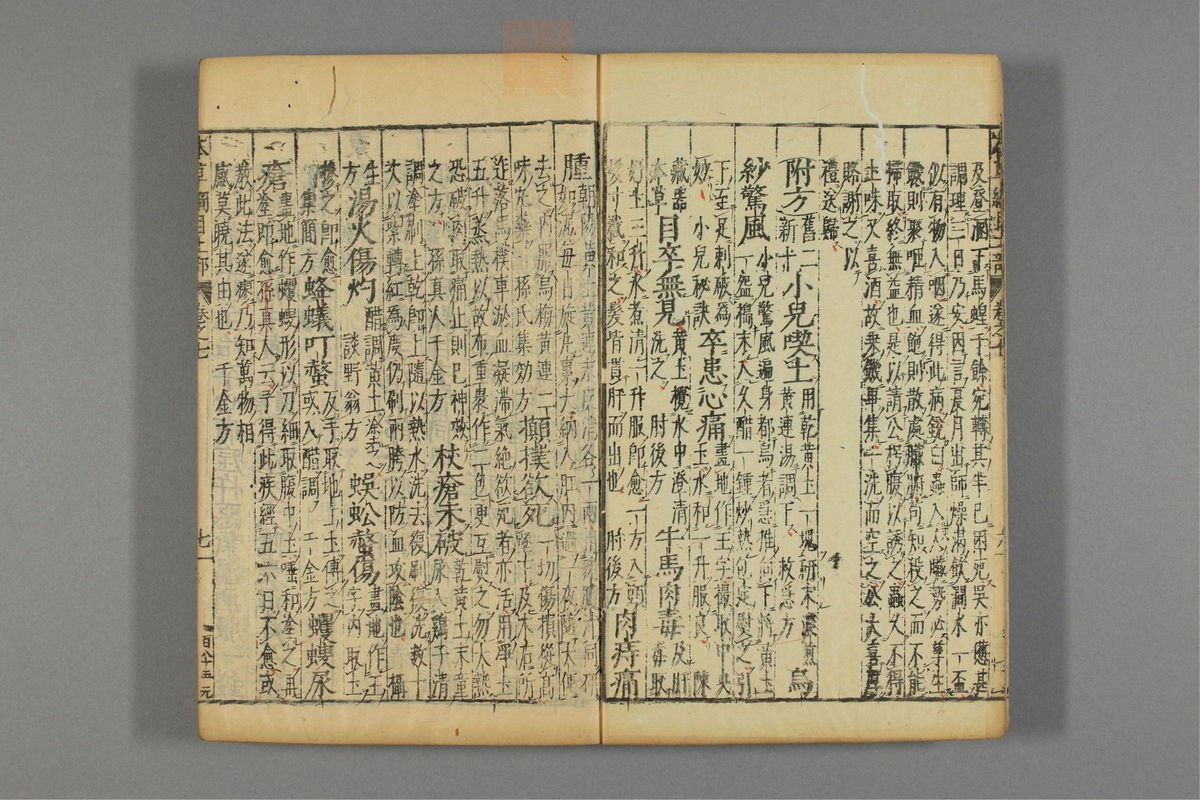 及昏涸于馬蝗千餘宛轉其半已困死吳亦憊甚
調理三日乃安因言夏月出師燥渴飲澗水一盃
似有物入咽遂得此病銳曰蟲入人臟勢必孳生
飢則聚咂精血飽則散處臟腑苟知殺之而不能
掃取終無益也是以請公枵腹以誘之蟲久不得
土味又喜酒故乘飢畢集一洗而空之公大喜厚
賂謝之以
禮送歸
附方舊二新十 小兒喫土用乾黃土一塊研末濃煎黃連湯調下救急方 烏
紗驚風小兒驚風遍身都烏者急推向下將黃土一盌搗末入久醋一鍾炒熱包定熨之引
下至足刺破為妙小兒秘訣 卒患心痛畫地作王字撮取中央土水和一升服良陳
藏器本草 目卒無見黃土攪水中澄清洗之肘後方 牛馬肉毒及肝毒取
好土三升水煮清一升服即愈一方入頭髮寸截和之髮皆貫肝而出也肘後方 肉痔痛
腫朝陽黃土黃連末皮消各一兩用猪膽汁同研如泥每日旋丸棗大納入肛內過一夜隨大便
去之內服烏梅黃連二味丸藥孫氏集効方 顛撲欲死一切傷損從高
下及木石所迮落馬撲車淤血凝滯氣絕欲死者亦活用淨土
五升蒸熱以故布重裹作二包更互熨之勿大熱恐破肉取痛止則已神效
之方孫真人千金方 杖瘡未破乾黃土末童尿入鷄子清
調塗刷上乾即上隨以熱水洗去復刷復洗數十次以紫轉紅為度仍刷兩胯以防血攻陰也攝
生方 湯火傷灼醋調黃土塗之談野翁方 蜈蚣螫傷畫地作王字內取土
摻之即愈集簡方 蜂蟻叮螫反手取地上土傅之或入醋調千金方 蠼螋尿
瘡畫地作蠼螋形以刀細取腹中土唾和塗之再塗即愈孫真人云予得此疾經五六日不愈或
教此法遂瘳乃知萬物相感莫曉其由也千金方
本草綱目土部 卷之七 七一 百八十五元